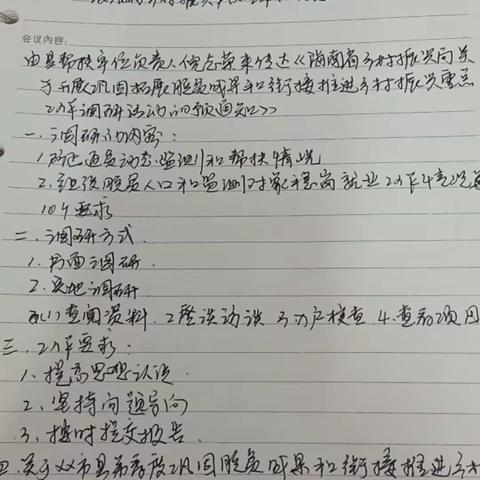 会议内容:
由县帮扶单位负责人倪志荣来传达《海南省乡村振兴局关
于开展巩固拓展脱贫成果和衔接推进乡村振兴重点
工作调研活动的预通知》
一、调研的内容:
1.防止返贫动态监测和帮扶情况
2.组织脱贫人口和监测对象稳岗就业工作情况
10个要求
二、调研方式.
1.书面调研.
2.实地调研
1.查阅资料. 2座谈访谈 3.功户核查 4.查看项目
三、工作要求:
1、提高思想认识.
2、坚持问题导向
3、按时提交报告.
四.关于XX市县第季度巩固脱贫成果和衔接推进乡村